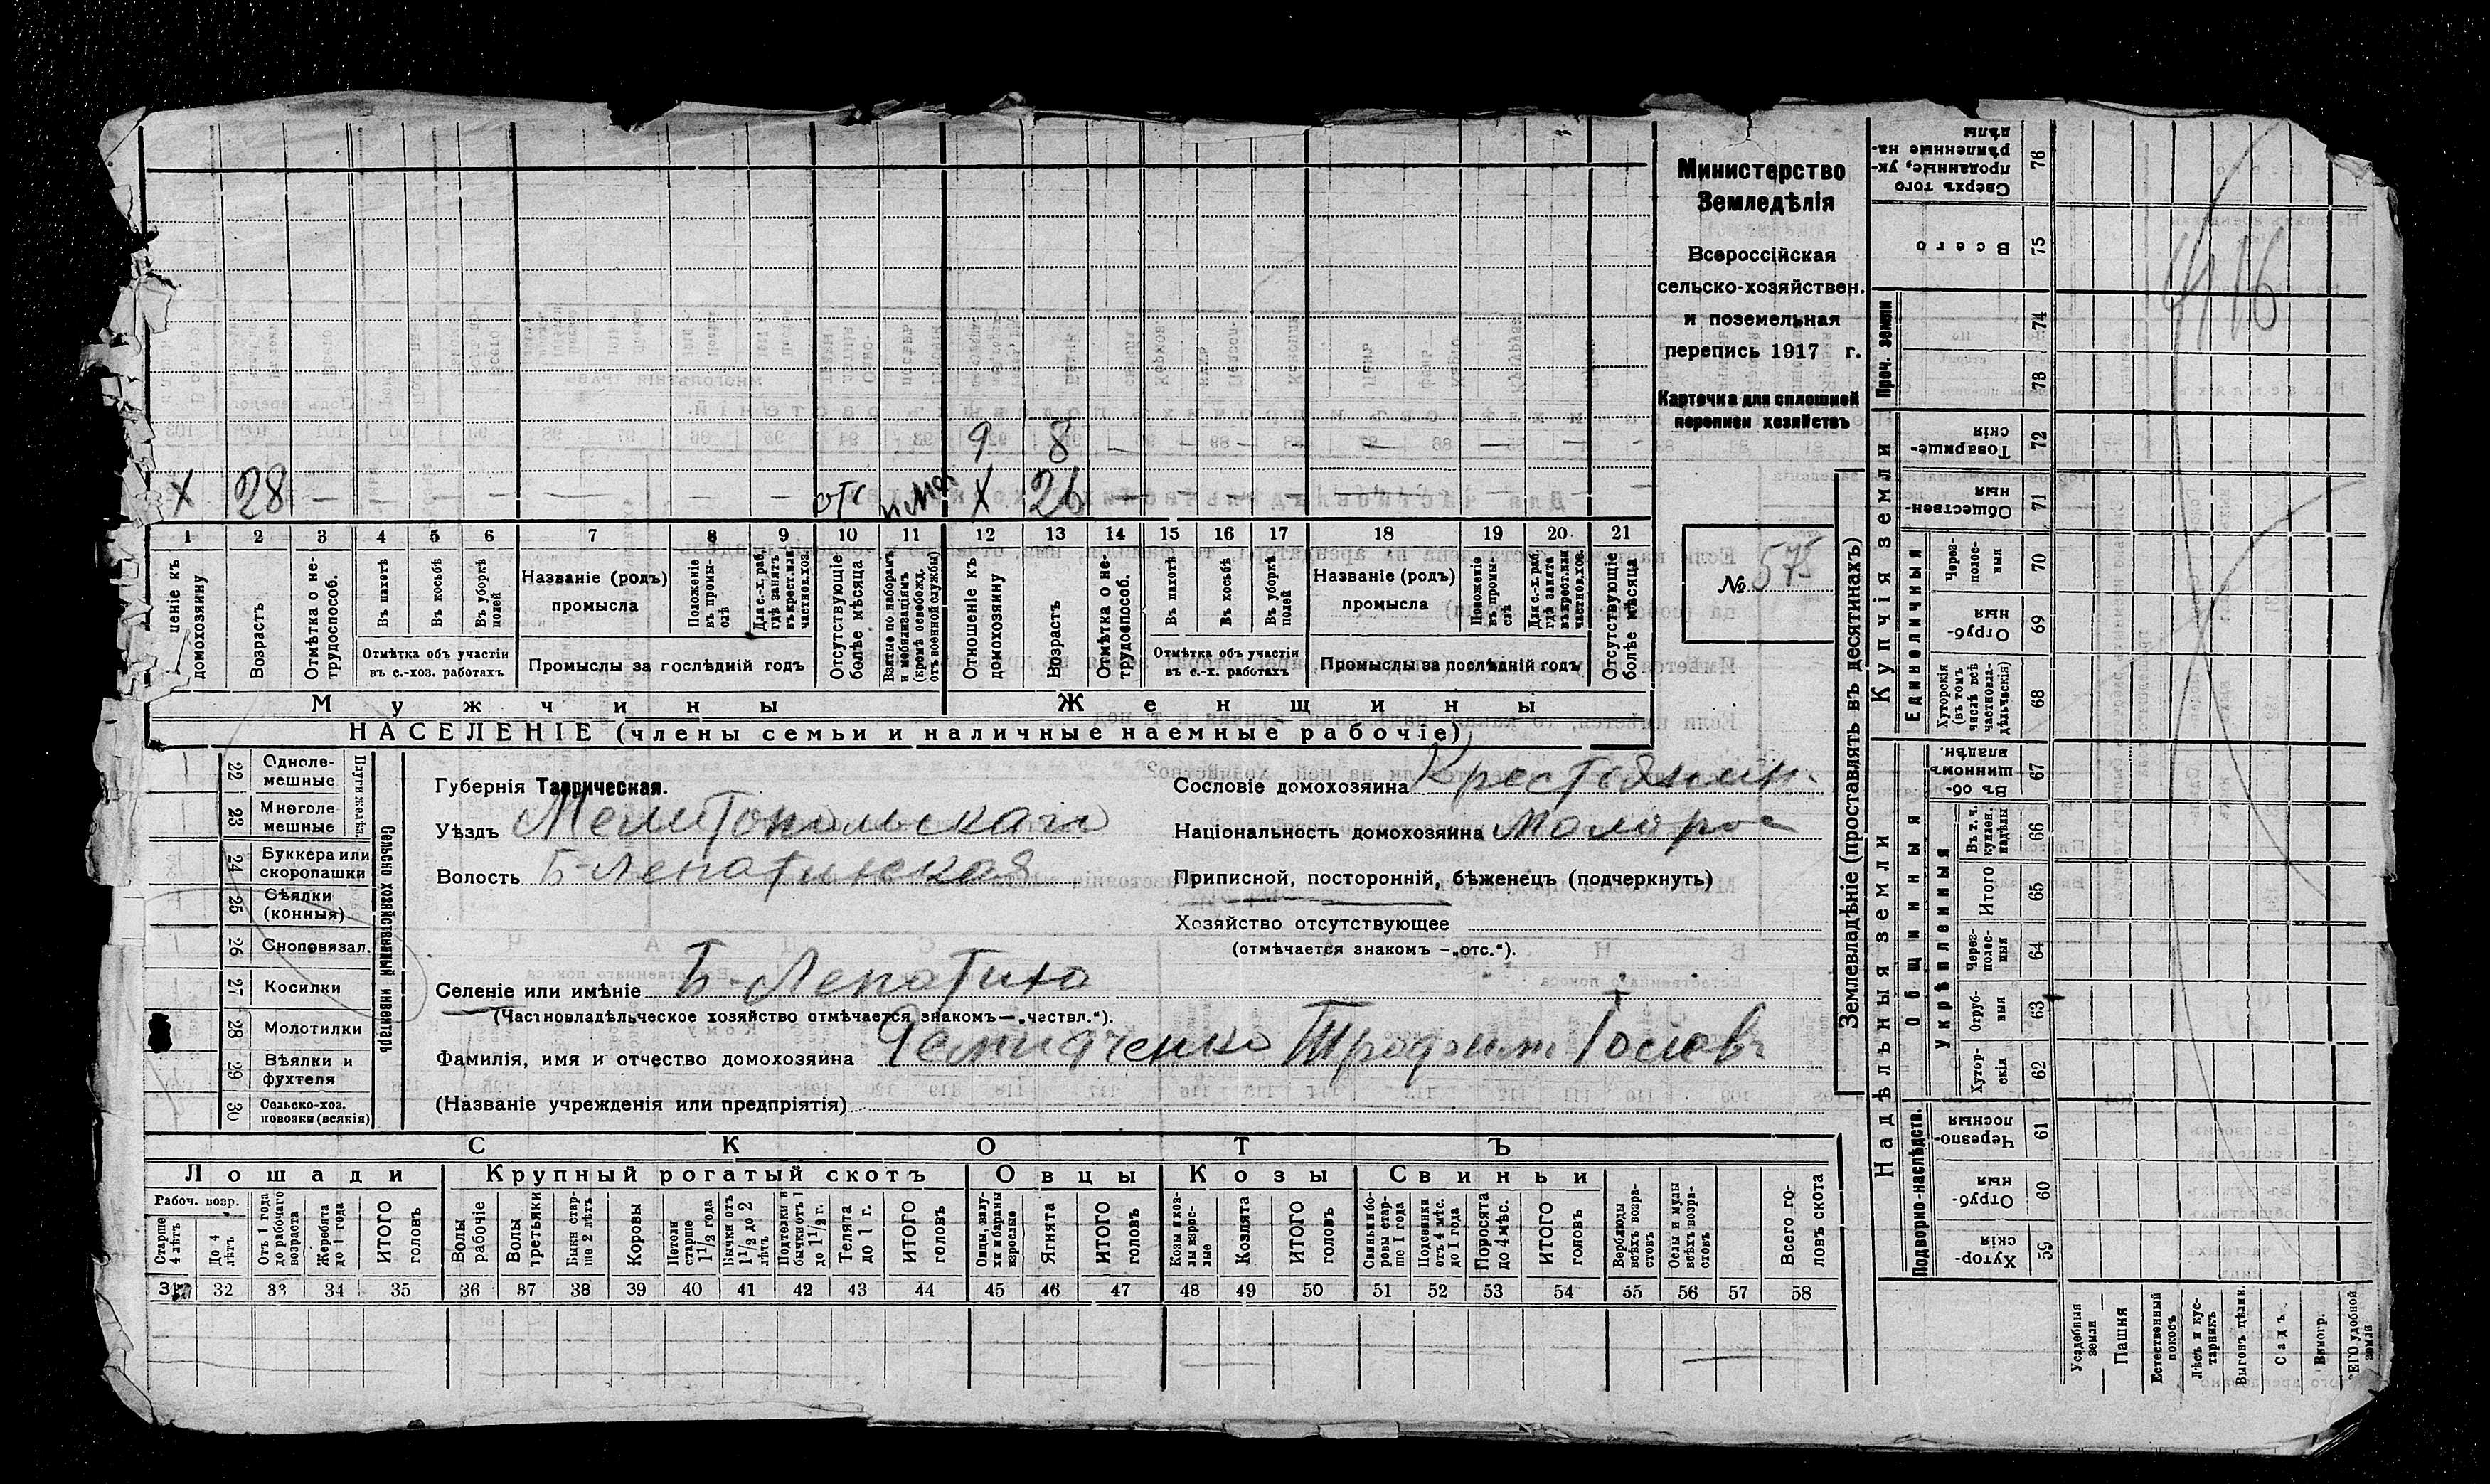 Министерство
Земледѣлія
Всероссійская
сельско-хозяйствен.
и поземельная
перепись 1917 г.
Карточка для сплошной
переписи хозяйствъ
№ 575
9 8 —
Х 28 — — — — — — — отс Х 26 — — — — — — —
1 2 3 4 5 6 7 8 9 10 11 12 13 14 15 16 17 18 19 20 21
ценіе къ домохозяину
Возрастъ
Отмѣтка о не-трудоспособ.
Въ пахотѣ
Въ косьбѣ
Въ уборкѣ полей
Отмѣтка объ участіи въ с.-хоз. работахъ
Названіе (родъ) промысла
Положеніе въ промы-слѣ
Для с.-х. раб. гдѣ занятъ въ крест. или частнов. хоз.
Промыслы за послѣдній годъ
Отсутствующіе болѣе мѣсяца
Взятые по наборамъ и мобилизаціямъ (кромѣ освобожд. отъ военной службы)
Отношеніе къ домохозяину
Возрастъ
Отмѣтка о не-трудоспособ.
Въ пахотѣ
Въ косьбѣ
Въ уборкѣ полей
Отмѣтка объ участіи въ с.-х. работахъ
Названіе (родъ) промысла
Положеніе въ промы-слѣ
Для с.-х. раб. гдѣ занята въ крест. или частнов. хоз.
Промыслы за послѣдній годъ
Отсутствующіе болѣе мѣсяца
Мужчины Женщины
НАСЕЛЕНІЕ (члены семьи и наличные наемные рабочіе)
Сельско хозяйственный инвентарь
Плуги желѣз.
22 Одноле-мешные
23 Многоле мешные
24 Буккера или скоропашки
25 Сѣялки (конныя)
26 Сноповязал.
27 Косилки
28 Молотилки
29 Вѣялки и фухтеля
30 Сельско-хоз. повозки (всякія)
Губернія Таврическая.
Уѣздъ Мелитопольскаги
Волость Б-Лепатихская
Селеніе или имѣніе Б-Лепатиха
(Частновладѣльческое хозяйство отмѣчается знакомъ—„частвл.“).
Фамилія, имя и отчество домохозяина Трофим
(Названіе учрежденія или предпріятія)
Сословіе домохозяина Крестьянин.
Національность домохозяина Малорос
Приписной, посторонній, бѣженецъ (подчеркнуть)
Хозяйство отсутствующее
(отмѣчается знакомъ —„отс.“).
СКОТЪ
Лошади Крупный рогатый скотъ Овцы Козы Свиньи
Рабоч. возр.
Старше 4 лѣтъ
До 4 лѣтъ
Отъ 1 года до рабочаго возраста
Жеребята до 1 года
ИТОГО головъ
Волы рабочіе
Волы третьяки
Быки стар-ше 2 лѣтъ
Коровы
Нетели старше 1 1/2 года
Бычки отъ 1 1/2 до 2 лѣтъ
Подтелки и бычки отъ 1 до 1 1/2 г.
Телята до 1 г.
ИТОГО головъ
Овцы, валу-хи и бараны взрослые
Ягнята
ИТОГО головъ
Козы и коз-лы взрос-лые
Козлята
ИТОГО головъ
Свиньи и бо-ровы стар-ше 1 года
Подсвинки отъ 4 мѣс. до 1 года
Поросята до 4 мѣс.
ИТОГО головъ
Верблюды всѣхъ возра-стовъ
Ослы и мулы всѣхъ возра-стовъ
Всего го-ловъ скота
31 32 33 34 35 36 37 38 39 40 41 42 43 44 45 46 47 48 49 50 51 52 53 54 55 56 57 58
Землевладѣніе (проставлять въ десятинахъ)
Надѣльныя земли Купчія земли Проч. земли
Подворно-наслѣдств.
Общинныя
Укрѣпленныя
Единоличныя
Хутор-скія 59
Отруб-ныя 60
Черезпо-лосныя 61
Хутор-скія 62
Отруб-ныя 63
Через-полос-ныя 64
Итого 65
Въ т. ч. куплен. надѣлы 66
Въ об-щинномъ владѣн. 67
Хуторскія (въ томъ числѣ всѣ частновла-дѣльческія) 68
Отруб-ныя 69
Через-полос-ныя 70
Обществен-ныя 71
Товарище-скія 72
73
74
Всего 75
Сверхъ того проданные, ук-рѣпленные на-дѣлы 76
Усадебныя земли
Пашня
Естественный покосъ
Лѣсъ и кус-тарникъ
Выгонъ цѣлин.
Садъ.
Виногр.
ЕГО удобной земли